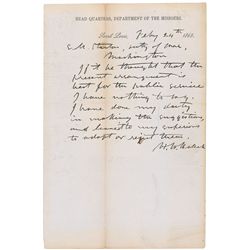 HEAD QUARTERS, DEPARTMENT OF THE MISSOURI,
Saint Louis, Feby 24th 1862.
E M Stanton, secty of war,
Washington
If it be thought that the
present arrangement is
best for the public service
I have nothing to say.
I have done my duty
in making the suggestions,
and leave it to my superiors
to adopt or reject them.
H. W. Halleck